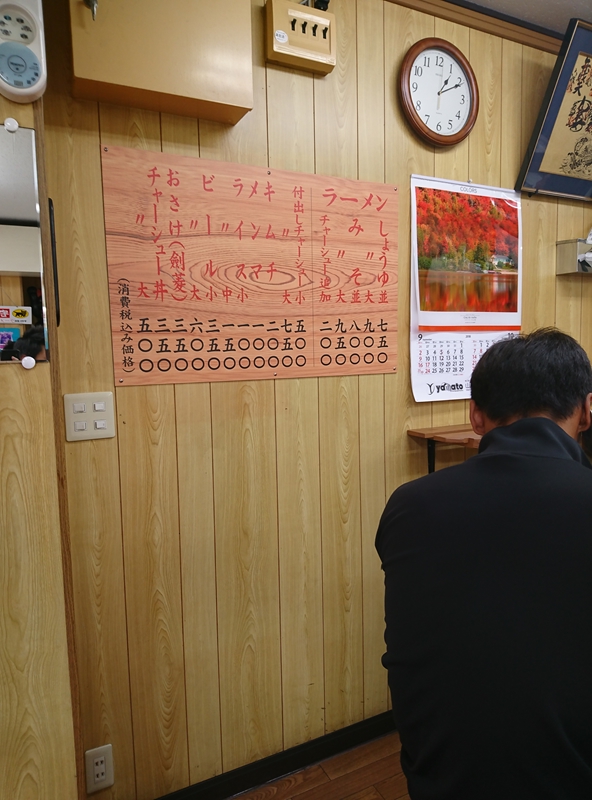 ラーメン
しょうゆ並 七五〇
〃 大 九〇〇
みそ並 八〇〇
〃 大 九五〇
チャーシュー追加 二五〇
付出しチャーシュー小 五〇〇
〃 大 七〇〇
キムチ 二〇〇
メンマ 一〇〇
ライス小 一〇〇
〃 中 一五〇
ビール小 三五〇
〃 大 六〇〇
おさけ(剣菱) 三五〇
チャーシュー丼 三五〇
〃 大 五〇〇
(消費税込み価格)
COLORS
9
10
yamato